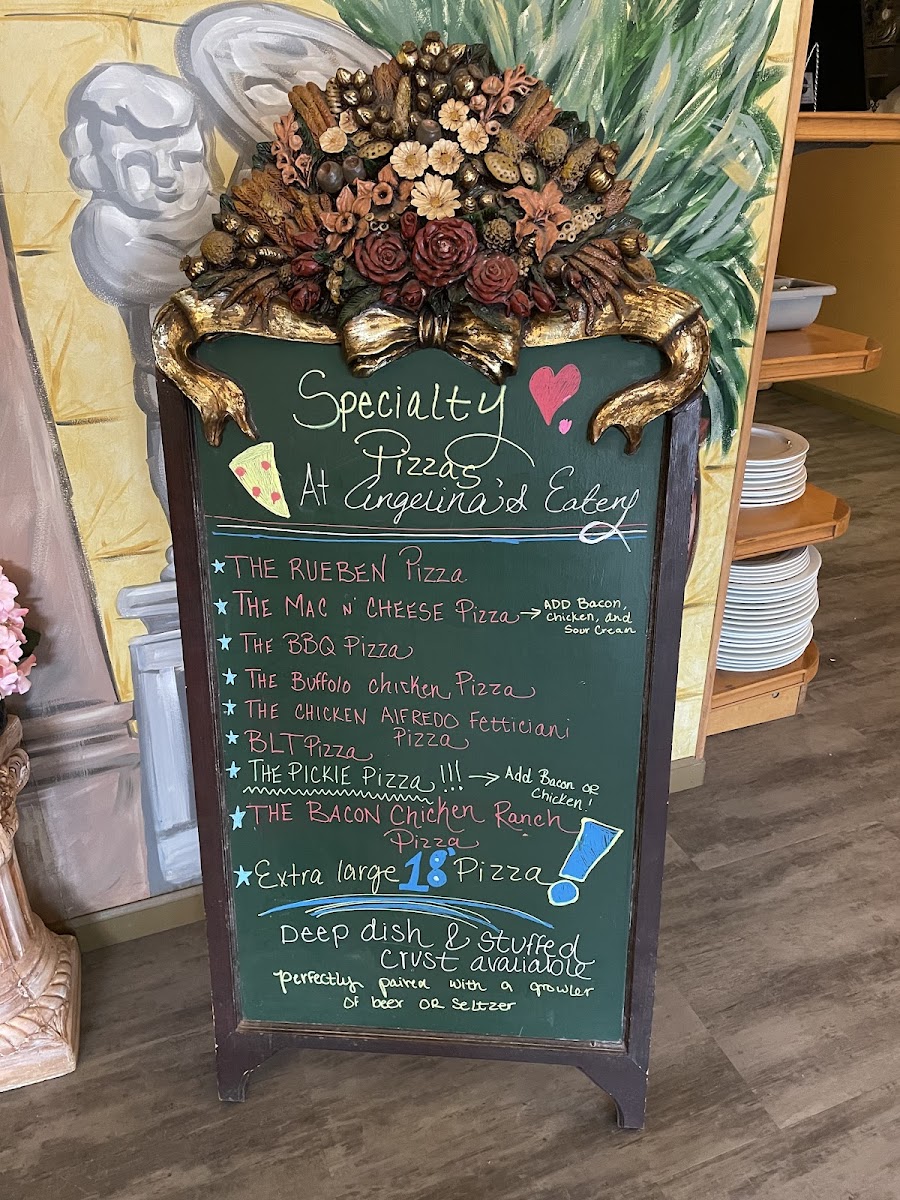 Specialty
Pizzas
At Angelina's Eatery
THE RUEBEN Pizza
THE MAC N' CHEESE Pizza → ADD Bacon,
Chicken, and
Sour Cream
THE BBQ Pizza
THE Buffolo chicken Pizza
THE CHICKEN AlFREDO Fetticiani
Pizza
BLT Pizza
THE PICKlE Pizza!!! → Add Bacon OR
Chicken!
THE BACON Chicken Ranch
Pizza
Extra large 18" Pizza!
Deep dish & stuffed
crust avaliable
perfectly paired with a growler
of beer OR Seltzer